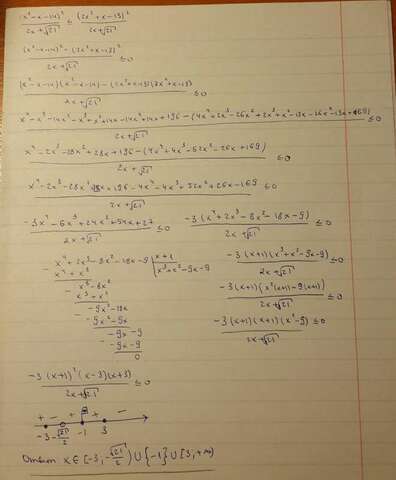 (x²-x-14)² / 2x+√21 ≤ (2x²+x-13)² / 2x+√21
(x²-x-14)² - (2x²+x-13)² / 2x+√21 ≤0
(x²-x-14)(x²-x-14 - (2x²+x-13)(2x²+x-13) / 2x+√21 ≤0
x⁴-x³-14x²-x³+x²+14x-14x²+14x+196-(4x⁴+2x³-26x²+2x³+x²-13x-26x²-13x+169) / 2x+√21 ≤0
x⁴-2x³-28x²+28x+196-(4x⁴+4x³-52x²-26x+169) / 2x+√21 ≤0
x⁴-2x³-28x²+28x+196-4x⁴-4x³+52x²+26x-169 / 2x+√21 ≤0
-3x⁴-6x³+24x²+54x+27 / 2x+√21 ≤0 -3(x⁴+2x³-8x²-18x-9) / 2x+√21 ≤0
x⁴+2x³-8x²-18x-9 | x+1
x⁴+x³ x³+x²-9x-9
x³-8x²
x³+x²
-9x²-18x
-9x²-9x
-9x-9
-9x-9
0
-3(x+1)(x³+x²-9x-9) / 2x+√21 ≤0
-3(x+1)(x²(x+1)-9(x+1)) / 2x+√21 ≤0
-3(x+1)(x+1)(x²-9) / 2x+√21 ≤0
-3(x+1)²(x-3)(x+3) / 2x+√21 ≤0
-3 -√21/2 -1 3
Ответ x∈[-3;-√21/2)∪{-1}∪[3;+∞)